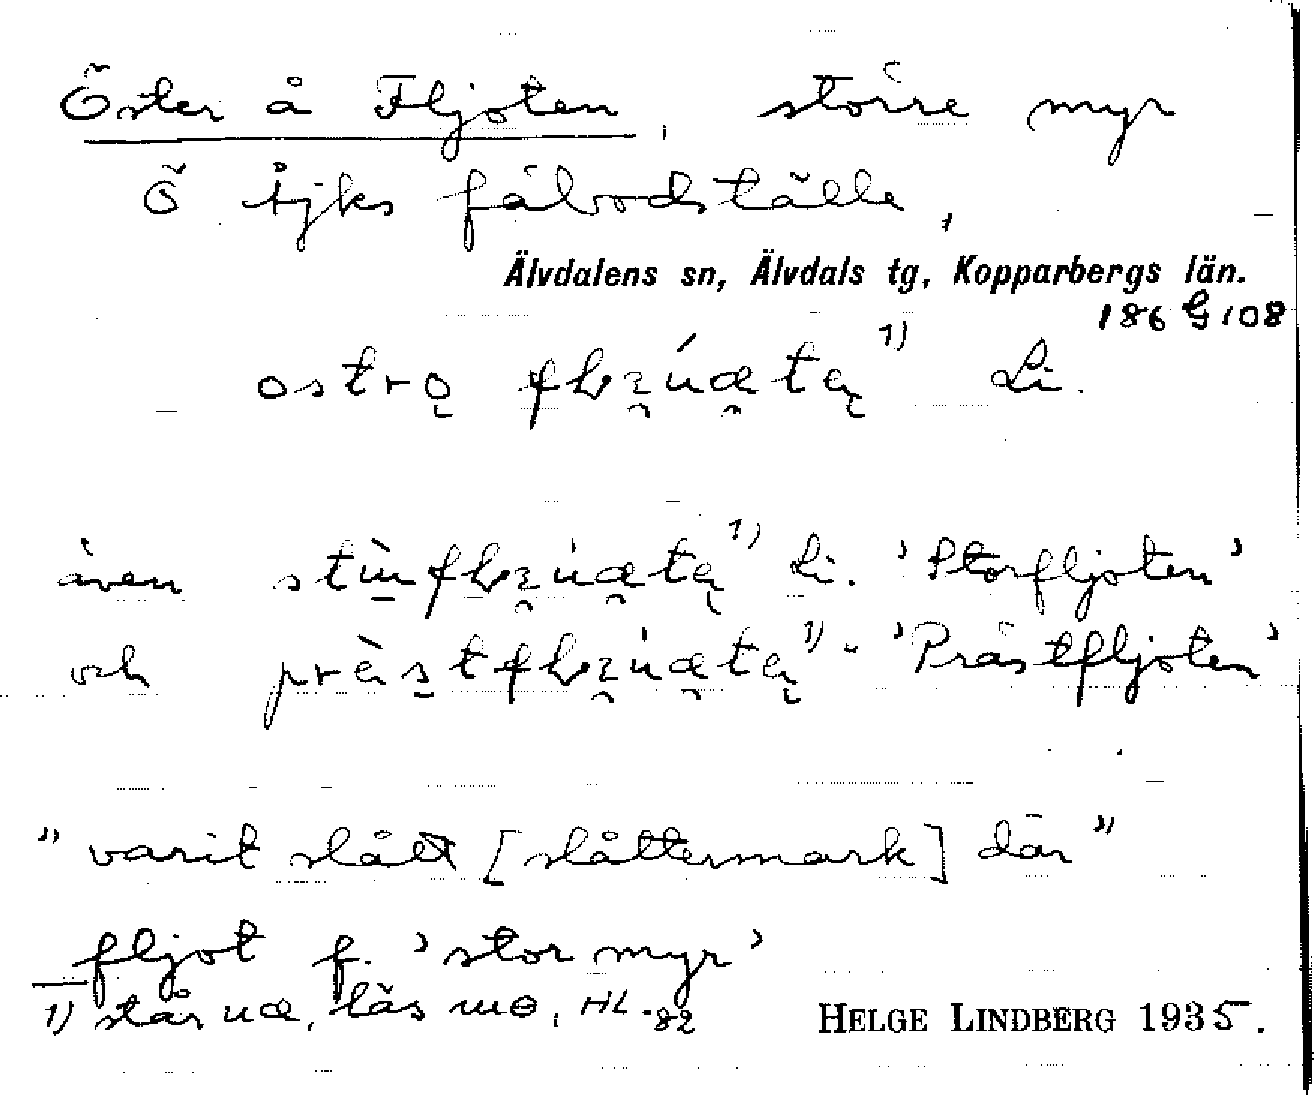 Öster å Fljoten, större myr
Ö Åjks fäbodställe,
Älvdalens sn, Älvdals tg, Kopparbergs län.
186 G 108
1) Li.
även 1) Li. 'Storfljoten'
och 1) " 'Prästfljoten'
"varit slått [slåttermark] där"
fljot f. 'stor myr'
1) står uæ, läs ɯɵ, HL -82
HELGE LINDBERG 1935.